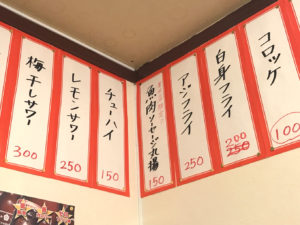 コロッケ
100
白身フライ
200
250
アジフライ
250
魚肉ソーセージ丸揚
150
チューハイ
150
レモンサワー
250
梅干しサワー
300